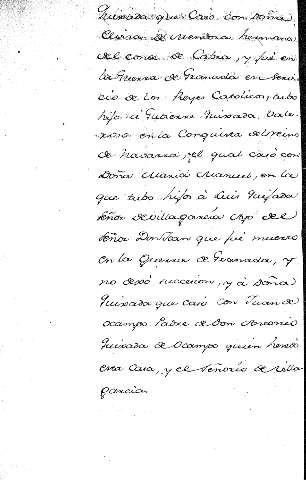 Quixada que Casó con Doña
Elvira de Mendoza hermana
del conde de Cabra, y fué en
la Guerra de Granada en servi
cio de los Reyes Catolicos, tubo
hijo á Gutierre Quixada, Vale
roso en la Conquista del reino
de Navarra, el qual casó con
Doña Maria Manuel, en la
que tubo hijos á Luis Quijada
Señor de Villagarcia Ayo del
Señor Don Juan que fué muerto
en la Guerra de Granada, y
no dexó succesion, y á Doña
Quixada que casó con Juan de
Ocampo Padre de Don Antonio
Quixada de Ocampo quien heredó
esta Casa, y el Señorio de Villa
garcia.